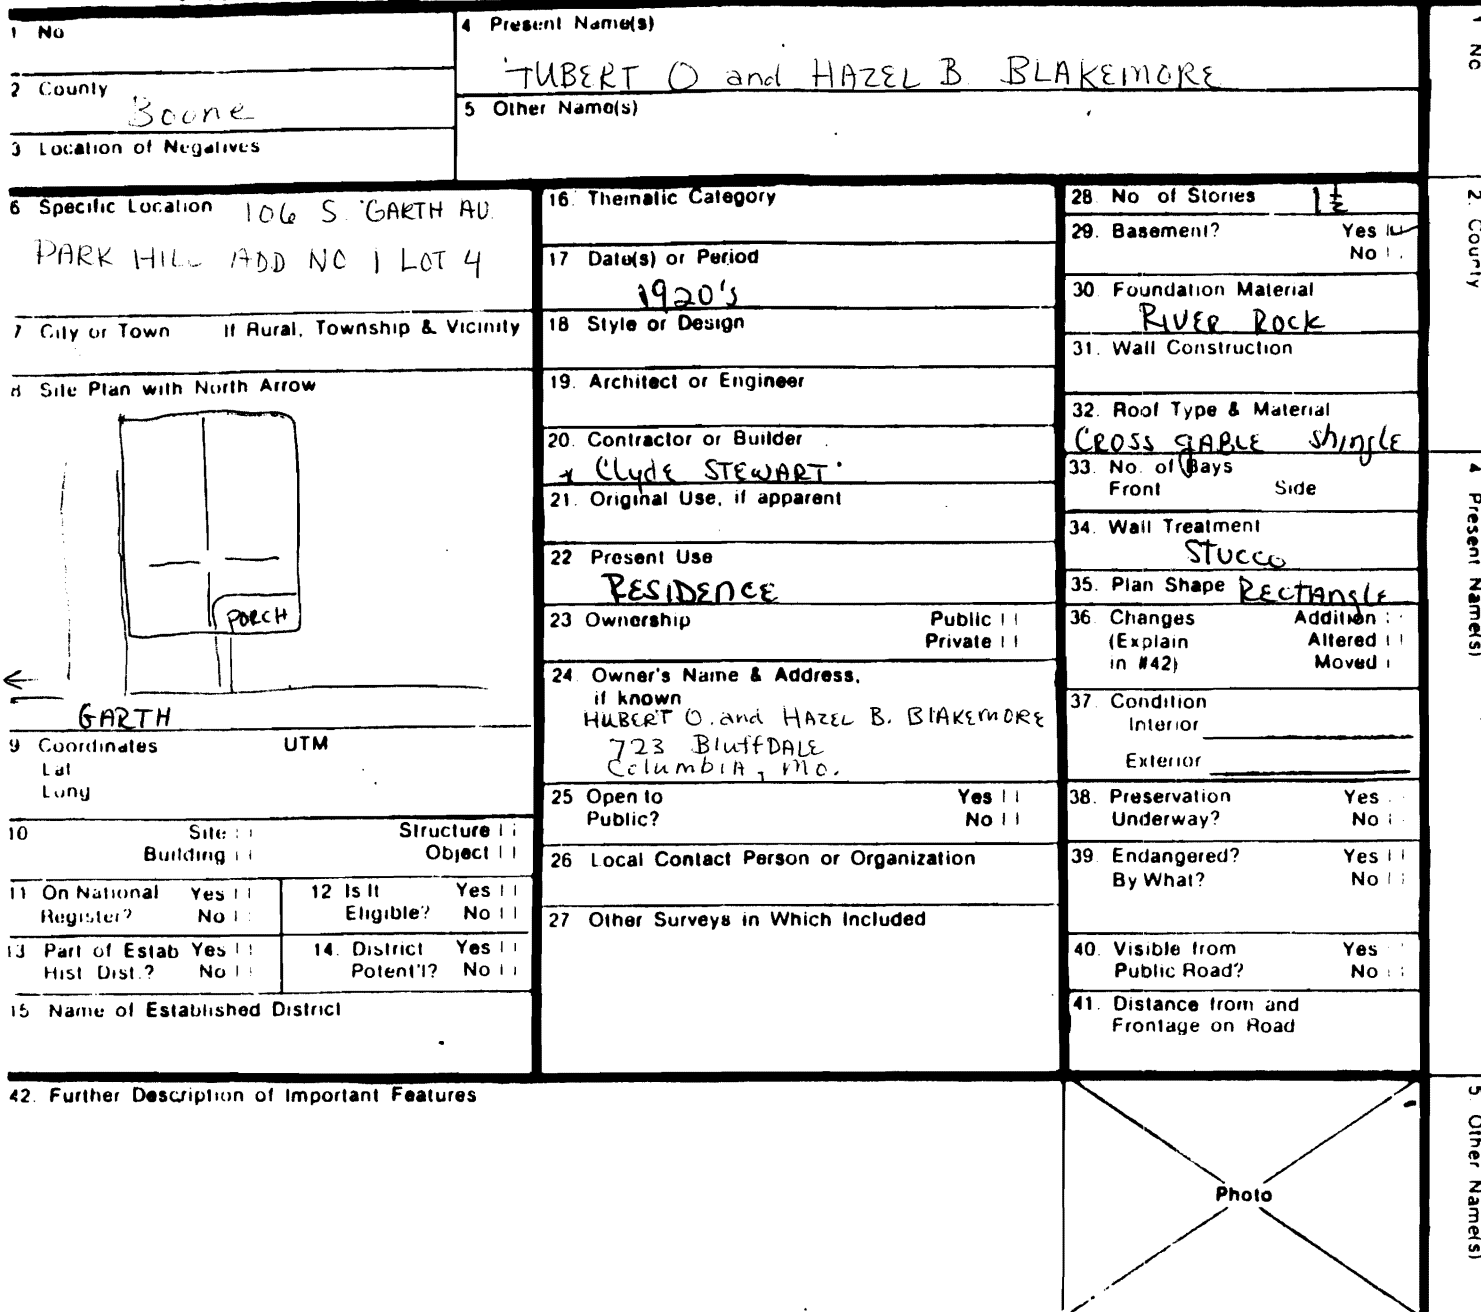 1 No
4 Present Name(s)
HUBERT O and HAZEL B. BLAKEMORE
2 County
Boone
5 Other Name(s)
3 Location of Negatives
6 Specific Location 106 S. GARTH AV.
PARK HILL ADD NO 1 LOT 4
7 City or Town If Rural, Township & Vicinity
8 Site Plan with North Arrow
PORCH
GARTH
9 Coordinates UTM
Lat
Long
10 Site Structure
Building Object
11 On National Yes
Register? No
12 Is It Yes
Eligible? No
13 Part of Estab Yes
Hist Dist.? No
14. District Yes
Potent'l? No
15 Name of Established District
16. Thematic Category
17 Date(s) or Period
1920's
18 Style or Design
19. Architect or Engineer
20. Contractor or Builder
* Clyde STEWART
21. Original Use, if apparent
22 Present Use
RESIDENCE
23 Ownership Public
Private
24 Owner's Name & Address,
if known
HUBERT O. and HAZEL B. BLAKEMORE
723 BluffDALE
ColumbIA, MO.
25 Open to Yes
Public? No
26 Local Contact Person or Organization
27 Other Surveys in Which Included
28. No of Stories 1½
29. Basement? Yes
No
30 Foundation Material
RIVER ROCK
31. Wall Construction
32. Roof Type & Material
CROSS gABLE shingle
33. No. of Bays
Front Side
34. Wall Treatment
STUCCO
35. Plan Shape RECTAngle
36. Changes Addition
(Explain Altered
in #42) Moved
37. Condition
Interior
Exterior
38. Preservation Yes
Underway? No
39. Endangered? Yes
By What? No
40. Visible from Yes
Public Road? No
41. Distance from and
Frontage on Road
42. Further Description of Important Features
Photo
1 No
2. County
4 Present Name(s)
5 Other Name(s)